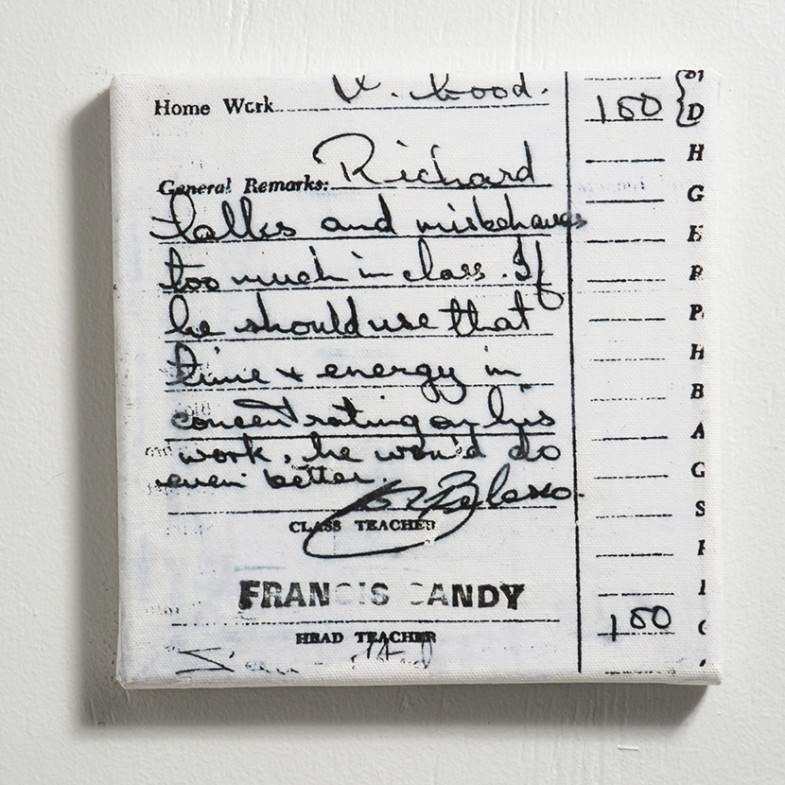 Home Work V. Good.
100 D
General Remarks: Richard
H
G
talks and misbehaves
too much in class. If
he should use that
P.
H
time + energy in
B
concentrating on his
A
work, he would do
G
even better.
S
CLASS TEACHER
FRANCIS CANDY
100
HEAD TEACHER